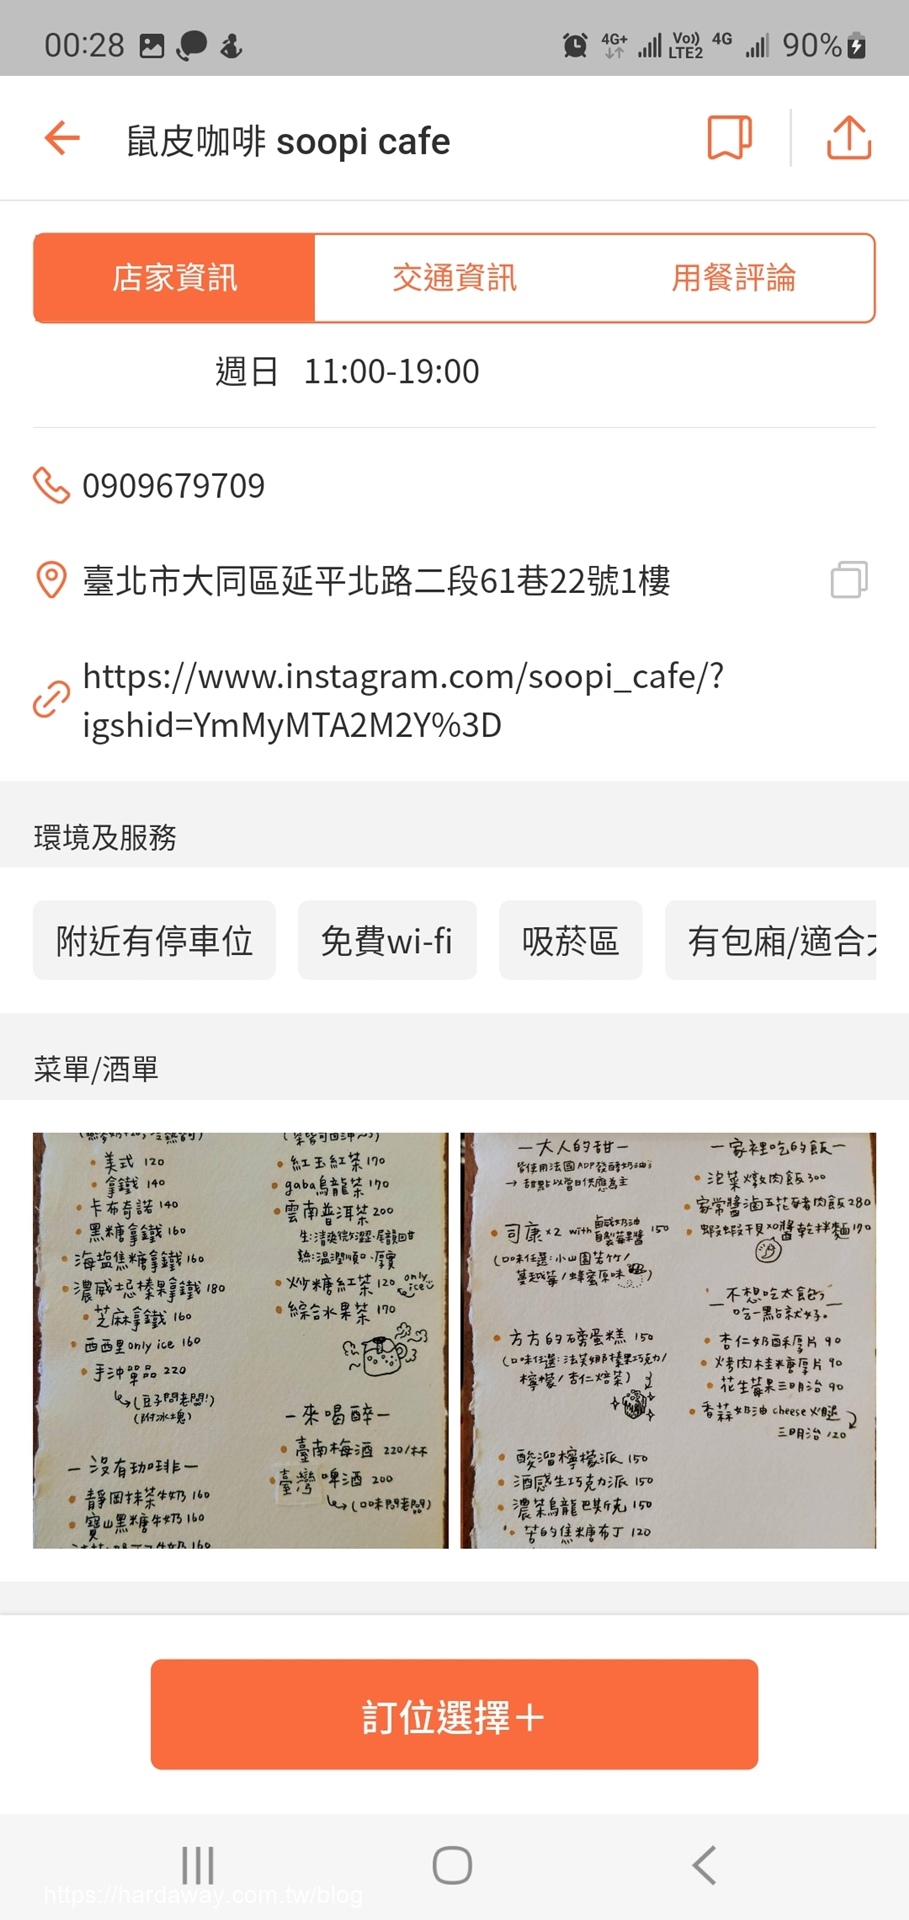 00:28
4G+ Vo)) LTE2 4G 90%
鼠皮咖啡 soopi cafe
店家資訊 交通資訊 用餐評論
週日 11:00-19:00
0909679709
臺北市大同區延平北路二段61巷22號1樓
https://www.instagram.com/soopi_cafe/?
igshid=YmMyMTA2M2Y%3D
環境及服務
附近有停車位 免費wi-fi 吸菸區 有包廂/適合
菜單/酒單
美式 120
拿鐵 140
卡布奇諾 140
黑糖拿鐵 160
海塩焦糖拿鐵 160
濃威士忌榛果拿鐵 180
芝麻拿鐵 160
西西里 only ice 160
手沖單品 220
(豆子問老闆!)
(附冰塊)
—沒有咖啡—
靜岡抹茶牛奶 160
寶山黑糖牛奶 160
紅玉紅茶 170
gaba烏龍茶 170
雲南普洱茶 200
生:清爽微澀·尾韻回甘
熱:溫潤順口·厚實
炒糖紅茶 120 only ice
綜合水果茶 170
—來喝醉—
臺南梅酒 220/杯
臺灣啤酒 200
(口味問老闆)
—大人的甜—
皆使用法國AOP發酵奶油
→ 甜點以當日供應為主
司康x2 with 鹹奶油 自製莓果醬 150
(口味任選:小山園若竹/
蔓越莓/蜂蜜原味)
方方的磅蛋糕 150
(口味任選:法芙娜榛果巧克力/
檸檬/杏仁焙茶)
酸溜檸檬派 150
酒感生巧克力派 150
濃茶烏龍巴斯克 150
苦的焦糖布丁 120
—家裡吃的飯—
泡菜燉肉飯 300
家常醬滷五花豬肉飯 280
蝦蝦干貝XO醬乾拌麵 190
不想吃太飽的
—吃一點點就好—
杏仁奶酥厚片 90
烤肉桂糖厚片 90
花生莓果三明治 90
香蒜奶油cheese火腿
三明治 120
訂位選擇＋
https://hardaway.com.tw/blog